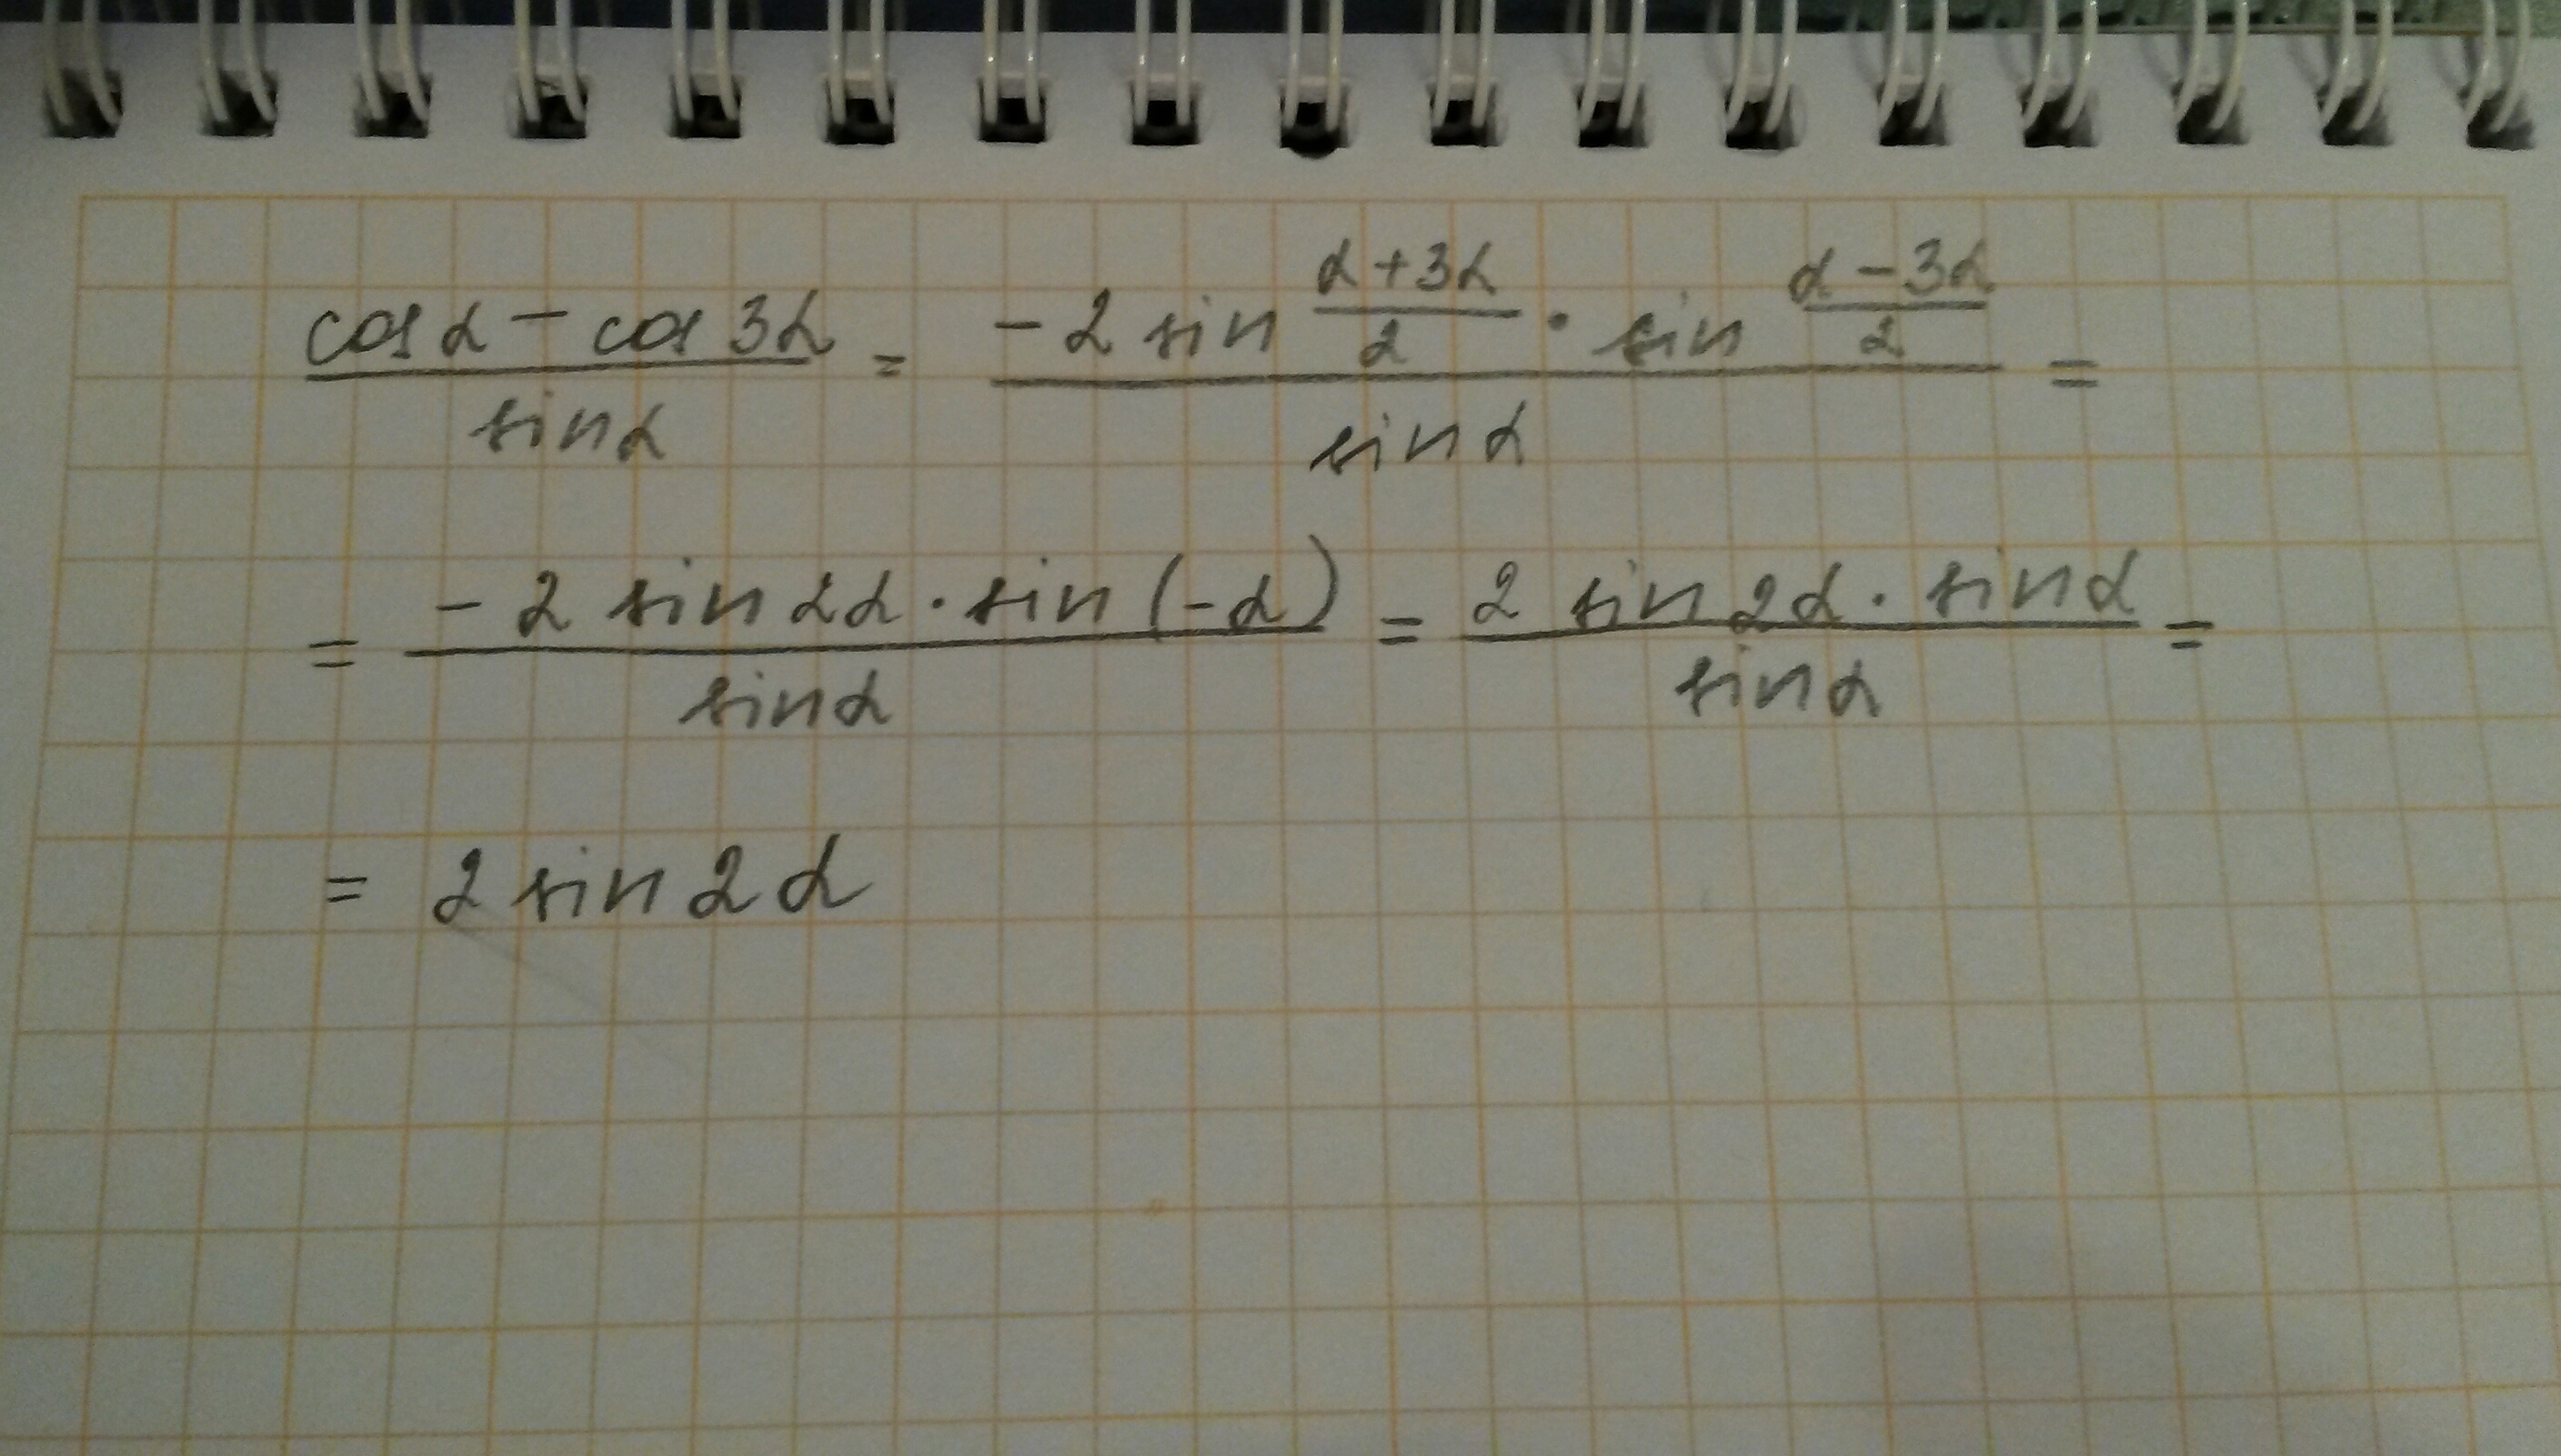 (cos α − cos 3α)/(sin α) = (−2 sin (α+3α)/2 · sin (α−3α)/2)/(sin α) =
= (−2 sin 2α · sin (−α))/(sin α) = (2 sin 2α · sin α)/(sin α) =
= 2 sin 2α